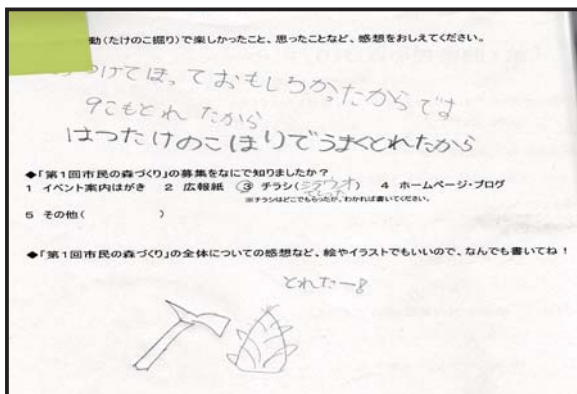 動(たけのこ掘り)で楽しかったこと、思ったことなど、感想をおしえてください。
つけてほっておもしろかったからです
9こもとれたから
はつたけのこほりでうまくとれたから
◆「第1回市民の森づくり」の募集をなにで知りましたか?
1 イベント案内はがき 2 広報紙 ③ チラシ( ) 4 ホームページ・ブログ
※チラシはどこでもらったか、わかれば書いてください。
5 その他( )
◆「第1回市民の森づくり」の全体についての感想など、絵やイラストでもいいので、なんでも書いてね!
とれたー